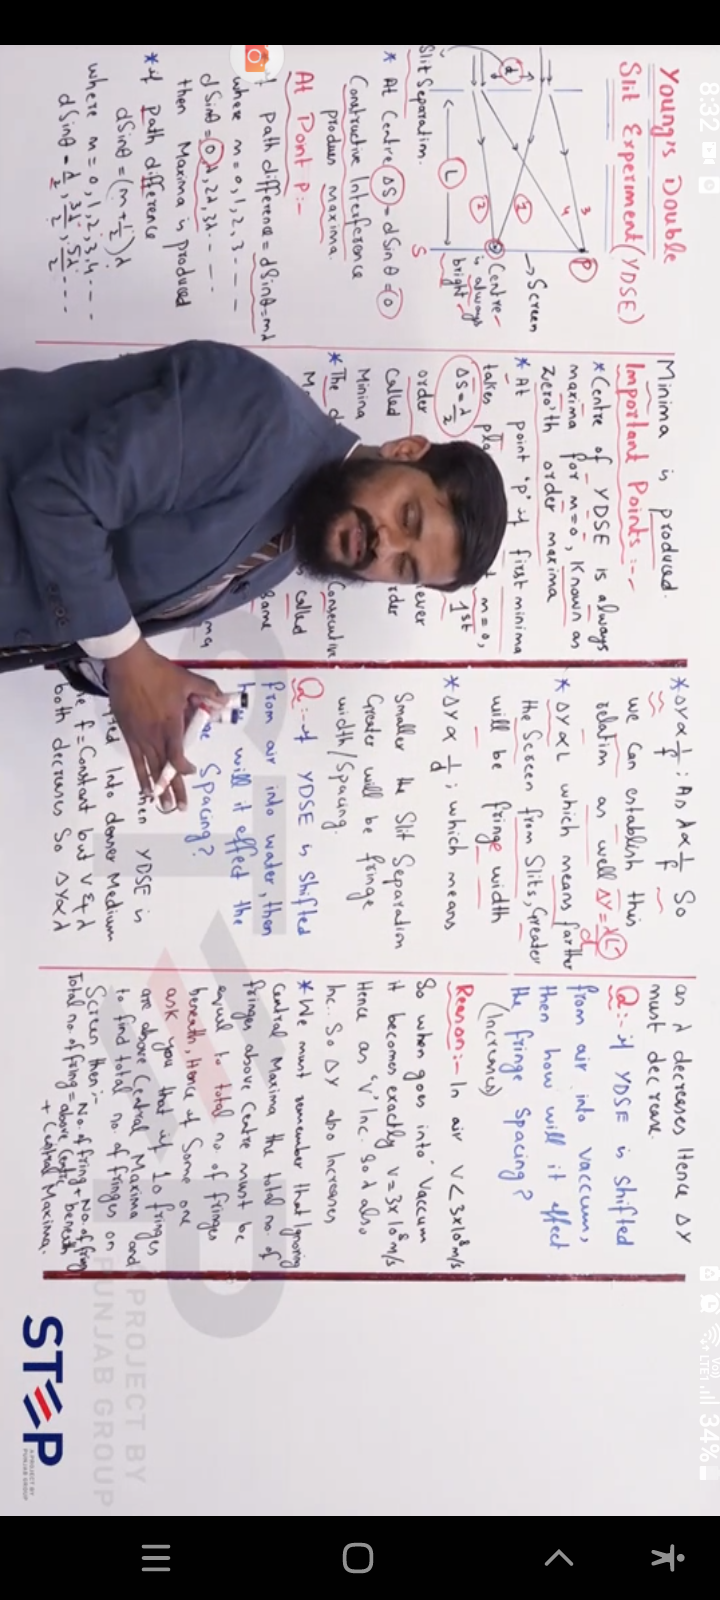 8:32
34%
Young's Double
Slit Experiment (YDSE)
P
3
4
1
2
d
L
O
S
→ Screen
Centre
is always
bright
Slit Separation.
* At Centre ΔS = dSinθ = 0
Constructive Interference
produces maxima.
At Point P:-
path difference = dSinθ = mλ
where m = 0, 1, 2, 3 - - - -
dSinθ = 0, λ, 2λ, 3λ - - - -
then Maxima is produced
* if path difference
dSinθ = (m + 1/2) λ
where m = 0, 1, 2, 3, 4 - - -
dSinθ = λ/2, 3λ/2, 5λ/2 - - -
Minima is produced.
Important Points:-
* Centre of YDSE is always
maxima for m = 0, Known as
Zero'th order maxima
* At point 'p' if first minima
takes m = 0,
ΔS = λ/2 1st
order
Called
Minima
* The Consecutive
Same
called
* ΔY ∝ 1/f ; As λ ∝ 1/f So
we can establish this
relation as well ΔY = λL/d
* ΔY ∝ L which means farther
the Screen from Slits, Greater
will be fringe width
* ΔY ∝ 1/d ; which means
Smaller the Slit Separation
Greater will be fringe
width/Spacing.
Q:- if YDSE is Shifted
from air into water, then
will it effect the
Spacing?
when YDSE is
Into denser Medium
f = Constant but v & λ
both decreases So ΔY ∝ λ
as λ decreases Hence ΔY
must decrease.
Q:- if YDSE is shifted
from air into vaccum,
then how will it effect
the fringe Spacing?
(Increases)
Reason:- In air V < 3x10⁸ m/s
So when goes into Vaccum
it becomes exactly v = 3x10⁸ m/s
Hence as 'V' Inc. So λ also
Inc. So ΔY also Increases
* We must remember that Ignoring
Central Maxima the total no. of
fringes above Centre must be
equal to total no. of fringes
beneath, Hence if Some one
ask you that if 10 fringes
are above Central Maxima and
to find total no. of fringes on
Screen then:-
Total no. of fring = No. of fring above Centre + No. of fring beneath
+ Central Maxima.
STEP
A PROJECT BY
PUNJAB GROUP
PROJECT BY
PUNJAB GROUP